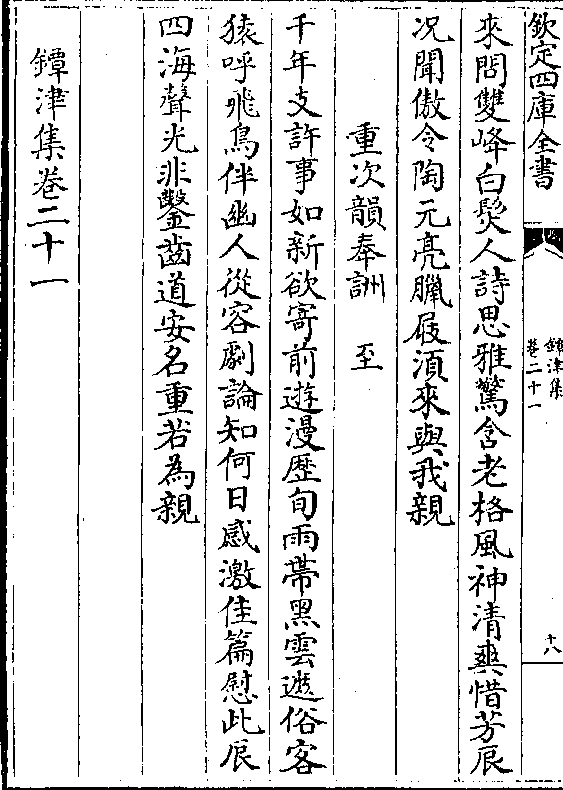 欽定四庫全書
鐔津集
卷二十一
十八
來問雙峰白髮人詩思雅驚含老格風神清爽惜芳辰
况聞傲令陶元亮臘屐湏來與我親
重次韻奉詶 至
千年支許事如新欲寄前遊漫歴旬雨帶黑雲遮俗客
猿呼飛鳥伴幽人從容劇論知何日感激佳篇慰此辰
四海聲光非鑿齒道安名重若為親
鐔津集卷二十一